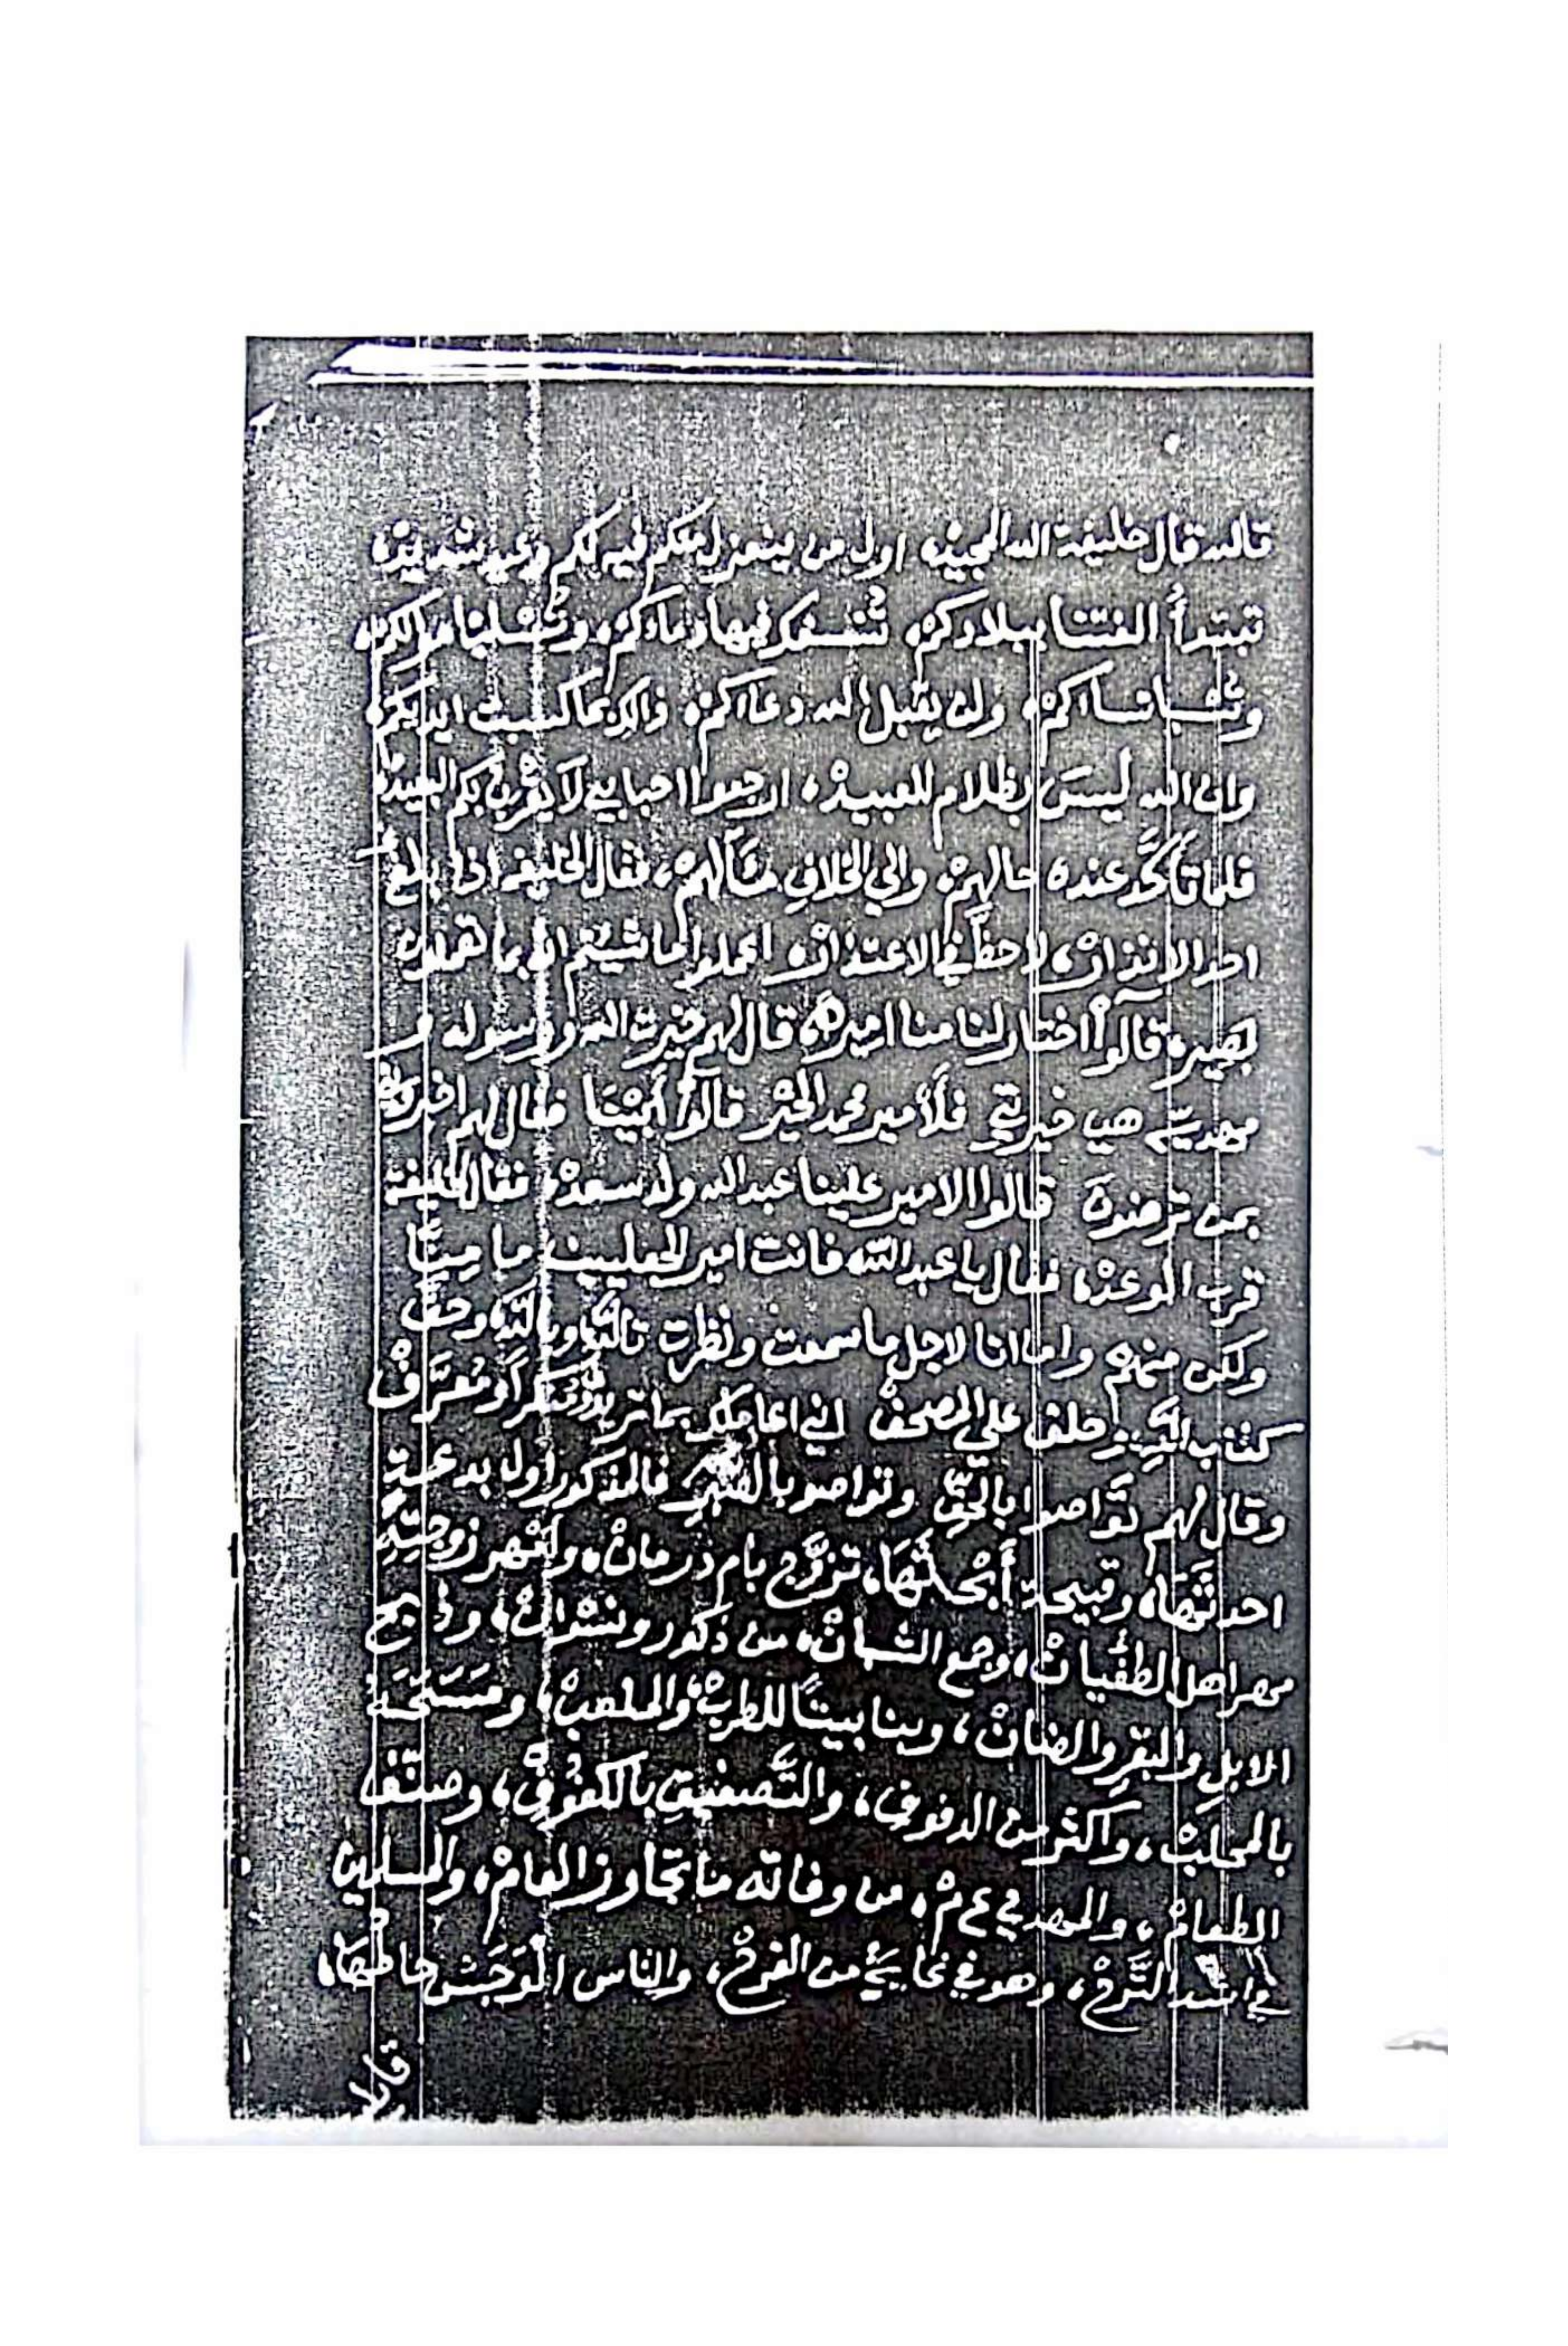 تالله قال خليفة الله المجيد، اول من ينعزل منكم فيه لكم وعيد شديد،
تبتدأ الفتنا ببلادكم، تنسفك فيها دماءكم، وتسلبا موالكم،
وتسبا نساكم، ولن يقبل الله دعاكم، ذالك بما كسبت ايديكم،
وان الله ليسَ بظلام للعبيد، ارجعوا احبابي لا يغرنكم البعيد
فلما تأكَّد عنده حالهم، والي الخلافِ مئالهم، فقال الخليفه اذا بلغ
امر الانذار، لاحظَّ في الاعتذار، اعملوا ما شيتم انه بما تعملون
بصير، قالوا اختار لنا منا امير، قال لهم خيرت الله ورسوله و
مهديه هي خيرتي فلأمير محمد الخير قالوا أبينا فقال لهم
بمن ترضون قالوا الامير علينا عبدالله ولد سعد، فقال الخليفة
قرب الوعد، فقال يا عبدالله فانت امير للجعليين ما مينَّا
ولكن منهم واما انا لاجل ما سمعت ونظرت تالله وبالله وحق
كتاب الله وحلف علي المصحف اني اعاملك بما تريد
وقال لهم تواصوا بالحقِّ وتواصو بالصبر فالمذكور اول بدعة
احدثَها، وقبيحة تزوَّج بام درمان، وامهر زوجتِهِ
مهر اهل الطغيات، وجمع الشبان، من ذكور ونسوان، وذبح
الابلِ والبقرِ والضان، وبنا بيتاً للطرب، والملعب، ومَسَحَهُ
بالمحلب، واكثر من الدفوف، والتَّصفيقِ بالكفوف، وصنّف
الطعام، والمهدي ع م، من وفاته ما تجاوز العام، والمسلمين
في اشد التَّرح، وهو في غايةٍ من الفرح، والناس